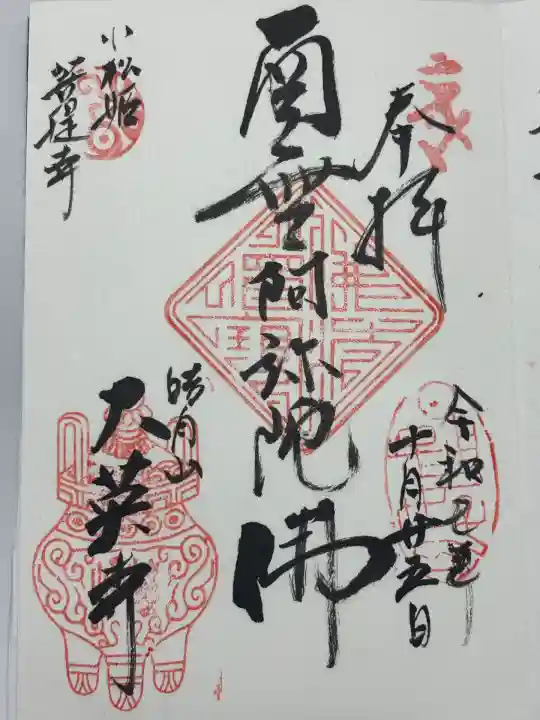 奉拝
令和七年
十月廿五日
南無阿弥陀佛
皓月山
大英寺
小松姫
菩提寺